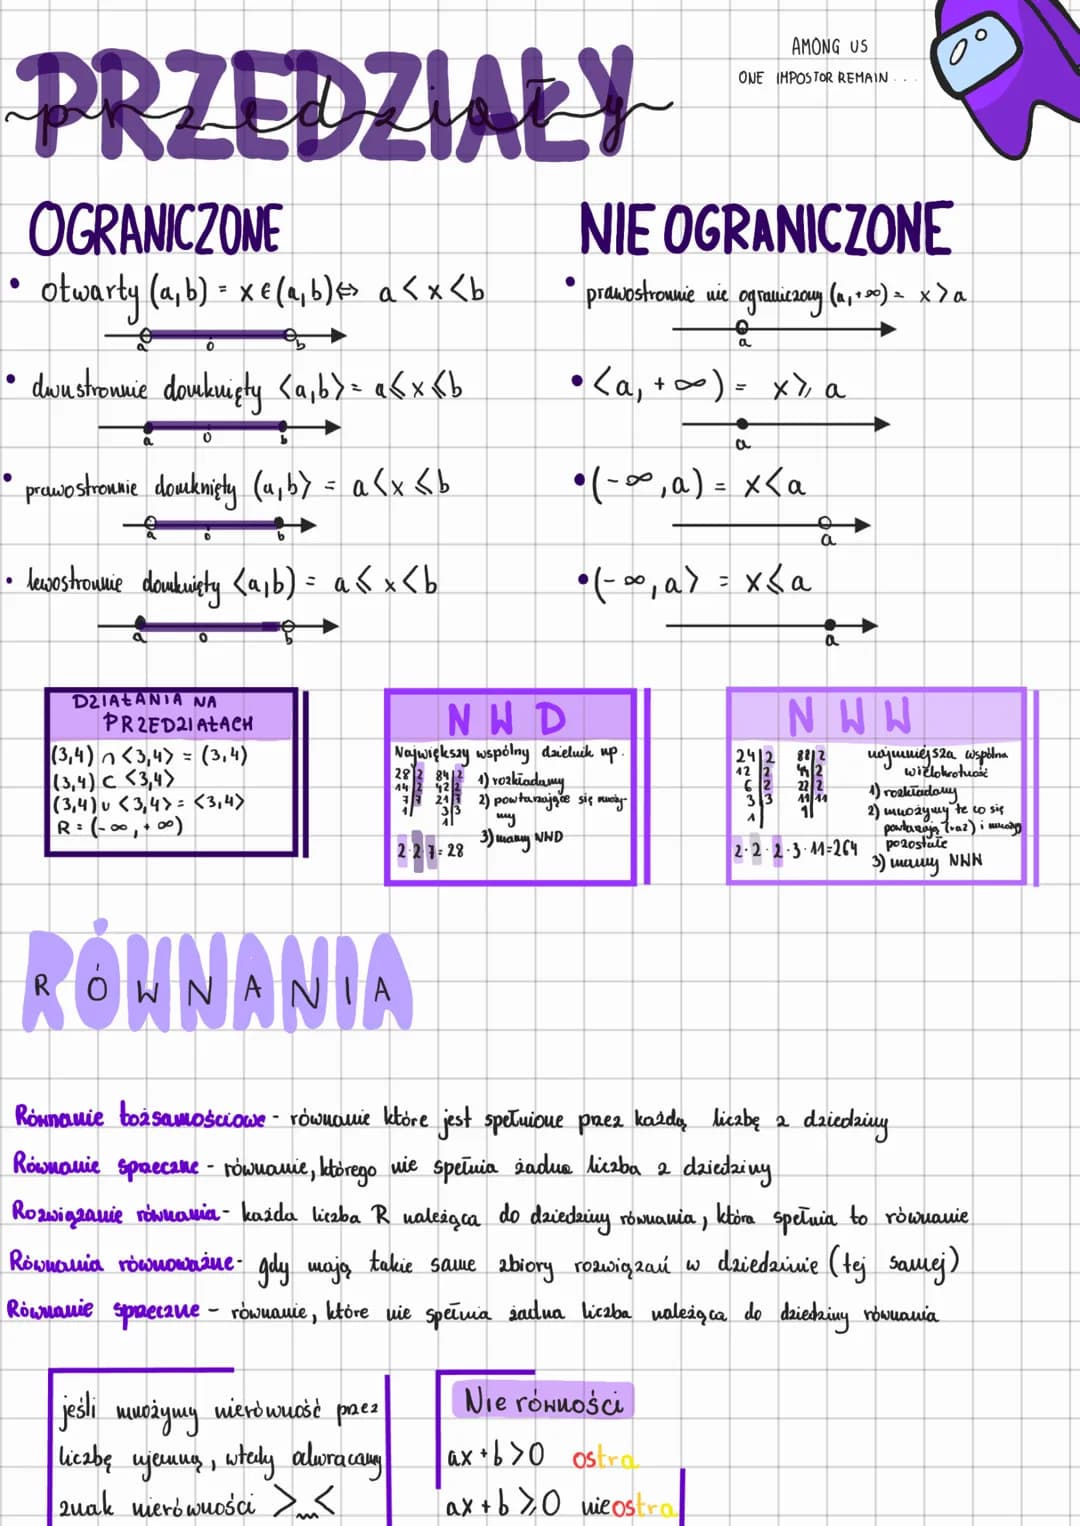 PRZEDZIAŁY
przedziały
AMONG US
ONE IMPOSTOR REMAIN . . .
OGRANICZONE
• otwarty (a,b) = x ∈ (a,b) ⇔ a < x < b
a 0 b
• dwustronnie domknięty <a,b> = a ⩽ x ⩽ b
a 0 b
• prawostronnie domknięty (a,b> = a < x ⩽ b
a 0 b
• lewostronnie domknięty <a,b) = a ⩽ x < b
a 0 b
NIE OGRANICZONE
• prawostronnie nie ograniczony (a,+∞) = x > a
a
• <a, +∞) = x ⩾ a
a
• (-∞,a) = x < a
a
• (-∞,a> = x ⩽ a
a
DZIAŁANIA NA
PRZEDZIAŁACH
(3,4) ∩ <3,4> = (3,4)
(3,4) ⊂ <3,4>
(3,4) ∪ <3,4> = <3,4>
R = (-∞,+∞)
NWD
Największy wspólny dzielnik np.
28|2 84|2
14|2 42|2
7|7 21|7
1| 3|3
1|
1) rozkładamy
2) powtarzające się mnoży-
my
3) mamy NWD
2·2·7=28
NWW
24|2 88|2
12|2 44|2
6|2 22|2
3|3 11|11
1| 1|
najmniejsza wspólna
wielokrotność
1) rozkładamy
2) mnożymy te co się
powtarzają (raz) i mnożymy
pozostałe
3) mamy NWW
2·2·2·3·11=264
RÓWNANIA
Równanie tożsamościowe - równanie które jest spełnione przez każdą liczbę z dziedziny
Równanie sprzeczne - równanie, którego nie spełnia żadna liczba z dziedziny
Rozwiązanie równania - każda liczba R należąca do dziedziny równania, która spełnia to równanie
Równania równoważne - gdy mają takie same zbiory rozwiązań w dziedzinie (tej samej)
Równanie sprzeczne - równanie, które nie spełnia żadna liczba należąca do dziedziny równania
jeśli mnożymy nierówność przez
liczbę ujemną, wtedy odwracamy
znak nierówności > <
Nie równości
ax + b > 0 ostra
ax + b ⩾ 0 nieostra